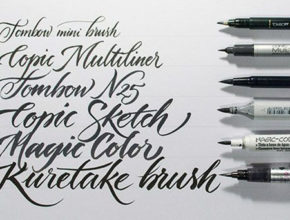 Tombow mini brush
Copic Multiliner
Tombow N25
Copic Sketch
Magic Color
Kuretake brush
MAGIC-COLOR